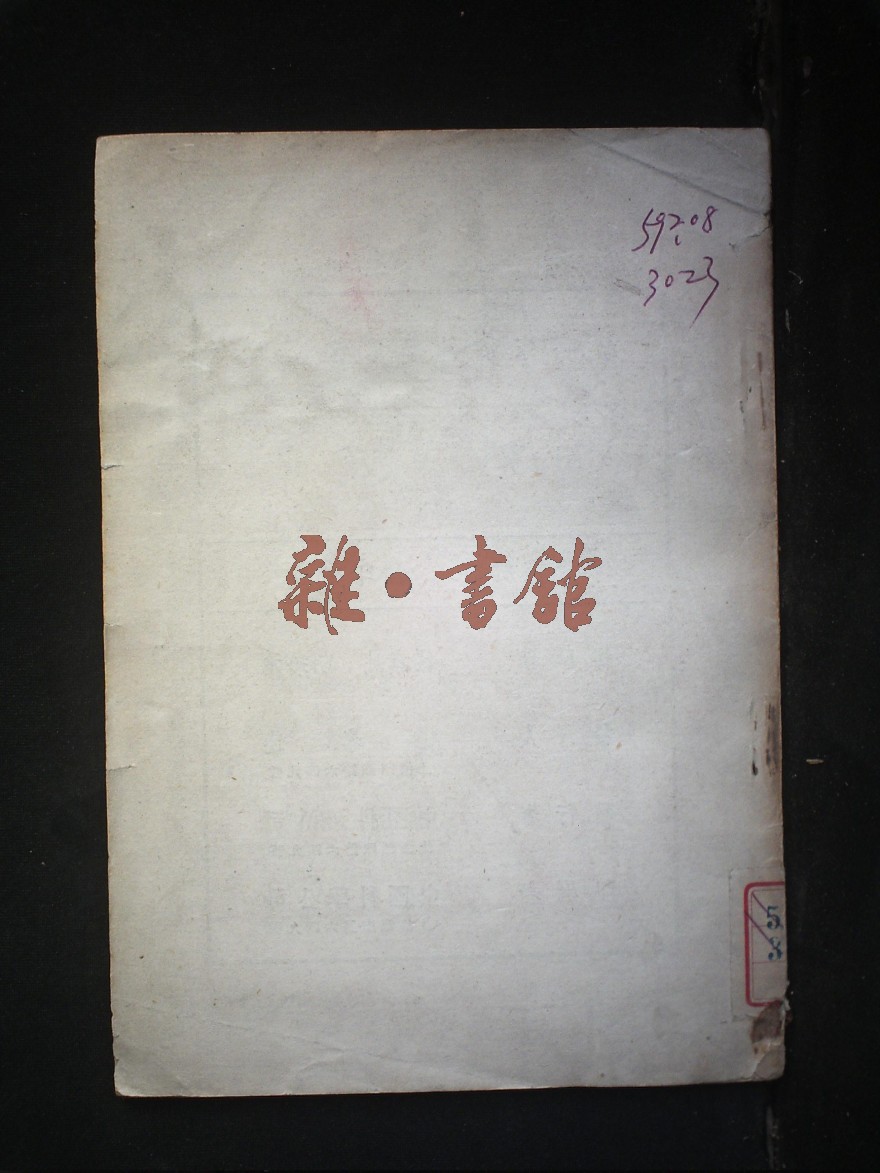 592.08
3023
雜·書館
5
3